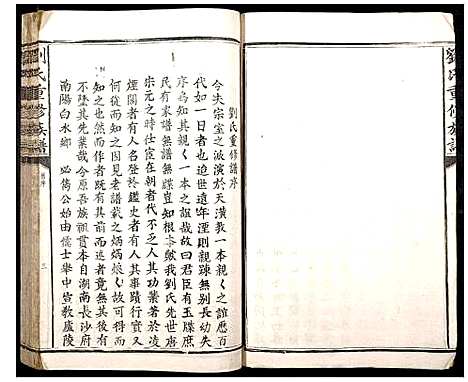 劉氏重修族譜
劉氏重修譜序
今夫宗室之派演於天潢教一本親〻之誼曆百
代如一日者也迨世遠年湮則親踈無别長幼失
序烏知其親〻一本之誼耶故曰君臣有玉牒庶
民有家譜無譜無牒豈知根本歟我劉氏先世唐
宋元之時仕宦在朝者代不乏人其功業著於凌
煙閣者有人名登於鑑史者有人其事蹟行實又
何從而知之因見老譜載之炳炳烺〻故可得而
知之也然而作者既有人而述者竟無其後有
不墜其先業哉今原吾族祖貫本自湖南長沙府
南陽白水鄉 必儁公始由儒士舉中宣教廬陵
劉氏重修族譜
譜序
三